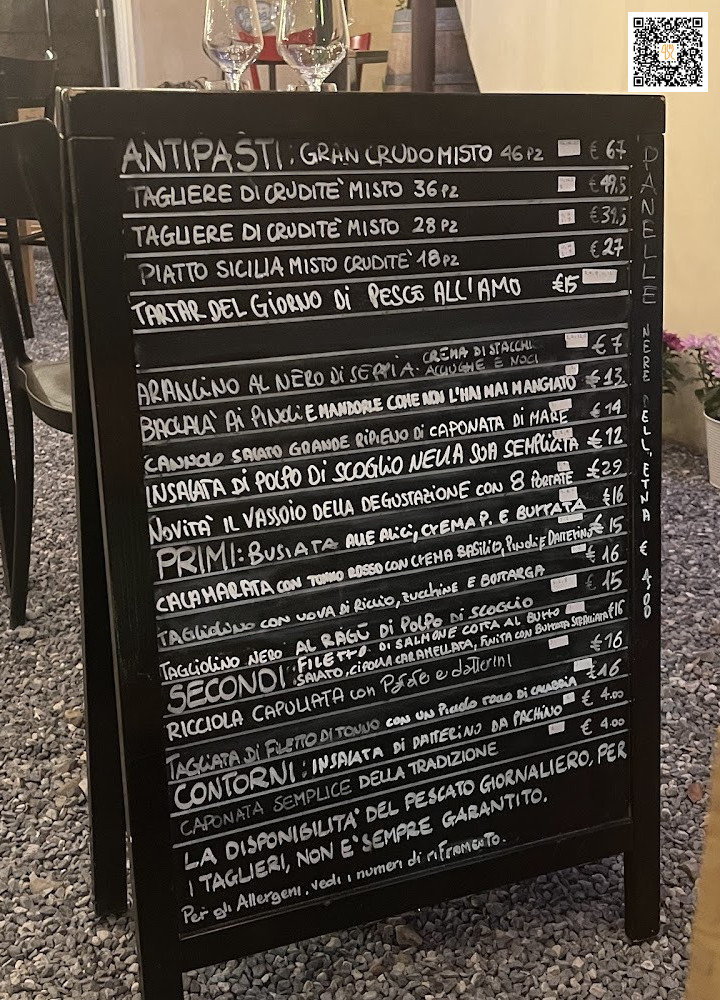 ANTIPASTI: GRAN CRUDO MISTO 46 PZ € 67
TAGLIERE DI CRUDITE` MISTO 36 PZ € 49,5
TAGLIERE DI CRUDITE` MISTO 28 PZ € 39,5
PIATTO SICILIA MISTO CRUDITE` 18 PZ € 27
TARTAR DEL GIORNO DI PESCE ALL'AMO €15
ARANCINO AL NERO DI SEPPIA. CREMA DI STACCHI € 7
ACCIUGHE E NOCI
BACCALA` AI PINOLI E MANDORLE COME NON L'HAI MAI MANGIATO € 13
CANNOLO SALATO GRANDE RIPIENO DI CAPONATA DI MARE € 14
INSALATA DI POLPO DI SCOGLIO NELLA SUA SEMPLICITA € 12
NOVITA` IL VASSOIO DELLA DEGUSTAZIONE CON 8 PORTATE € 29
PRIMI: BUSIATA ALLE ALICI, CREMA P. E BURRATA €16
CALAMARATA CON TONNO ROSSO CON CREMA BASILICO, PINOLI E DATTERINO € 15
TAGLIOLINO CON UOVA DI RICCIO, ZUCCHINE E BOTTARGA € 16
TAGLIOLINO NERO AL RAGÙ DI POLPO DI SCOGLIO € 15
SECONDI: FILETTO DI SALMONE COTTA AL BURRO
SALATO, CIPOLLA CARAMELLATA, FINITA CON BURRATA €16
RICCIOLA CAPULIATA con Patate e datterini € 16
TAGLIATA DI FILETTO DI TONNO CON UN PICCOLO TOCCO DI CALABRIA € 16
CONTORNI: INSALATA DI DATTERINO DA PACHINO € 4.00
CAPONATA SEMPLICE DELLA TRADIZIONE € 4.00
LA DISPONIBILITA` DEL PESCATO GIORNALIERO, PER
I TAGLIERI, NON E` SEMPRE GARANTITO.
Per gli Allergeni, vedi i numeri di riferimento.
PANELLE NERE DELL'ETNA € 4,00